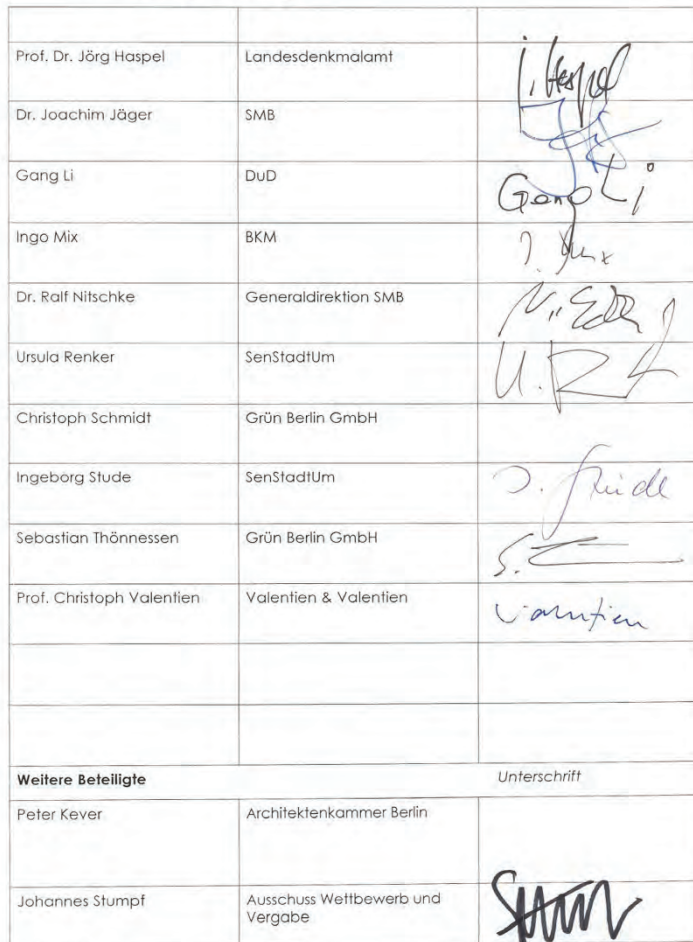 Prof. Dr. Jörg Haspel Landesdenkmalamt J. Haspel
Dr. Joachim Jäger SMB
Gang Li DuD Gang Li
Ingo Mix BKM I. Mix
Dr. Ralf Nitschke Generaldirektion SMB
Ursula Renker SenStadtUm U. R
Christoph Schmidt Grün Berlin GmbH
Ingeborg Stude SenStadtUm I. Stude
Sebastian Thönnessen Grün Berlin GmbH S.
Prof. Christoph Valentien Valentien & Valentien Valentien
Weitere Beteiligte Unterschrift
Peter Kever Architektenkammer Berlin
Johannes Stumpf Ausschuss Wettbewerb und
Vergabe